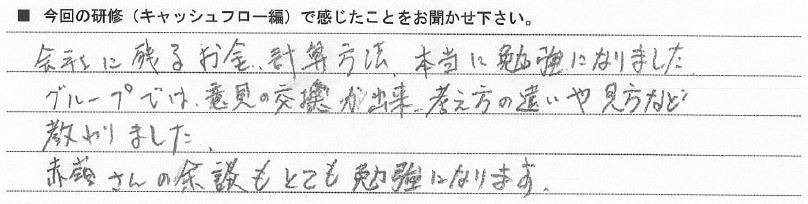 ■ 今回の研修（キャッシュフロー編）で感じたことをお聞かせ下さい。
会社に残るお金、計算方法 本当に勉強になりました。
グループでは、意見の交換が出来、考え方の違いや見方など
教わりました。
赤嶺さんの余談もとても勉強になります。